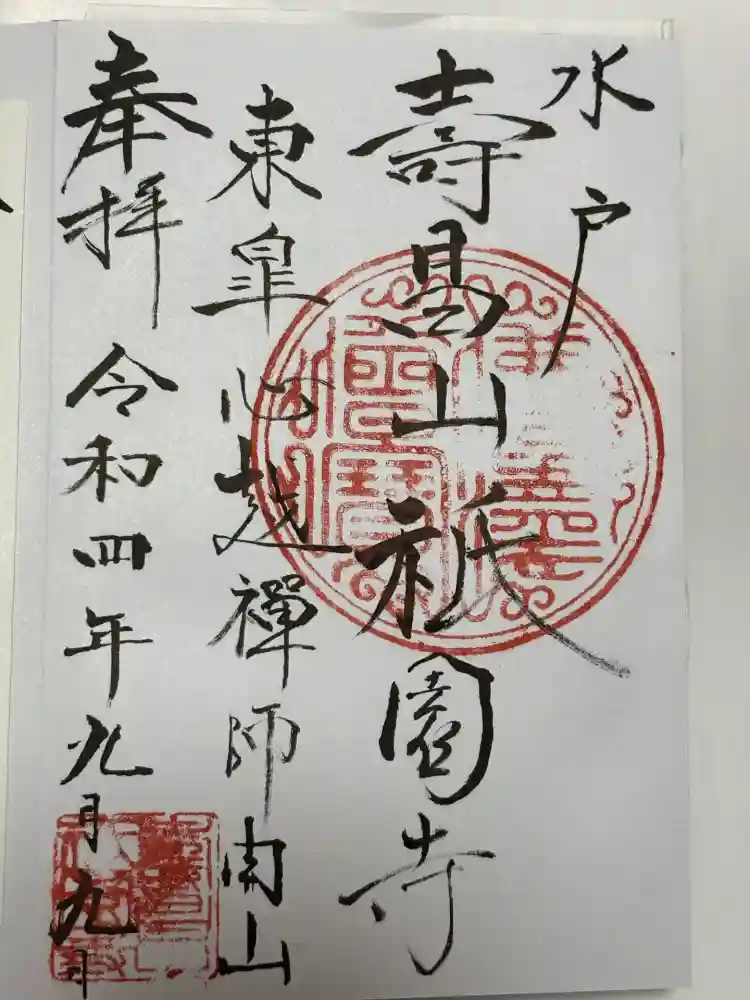 水戸
壽昌山祇園寺
東皐心越禅師開山
奉拝 令和四年九月九日
佛法僧寶